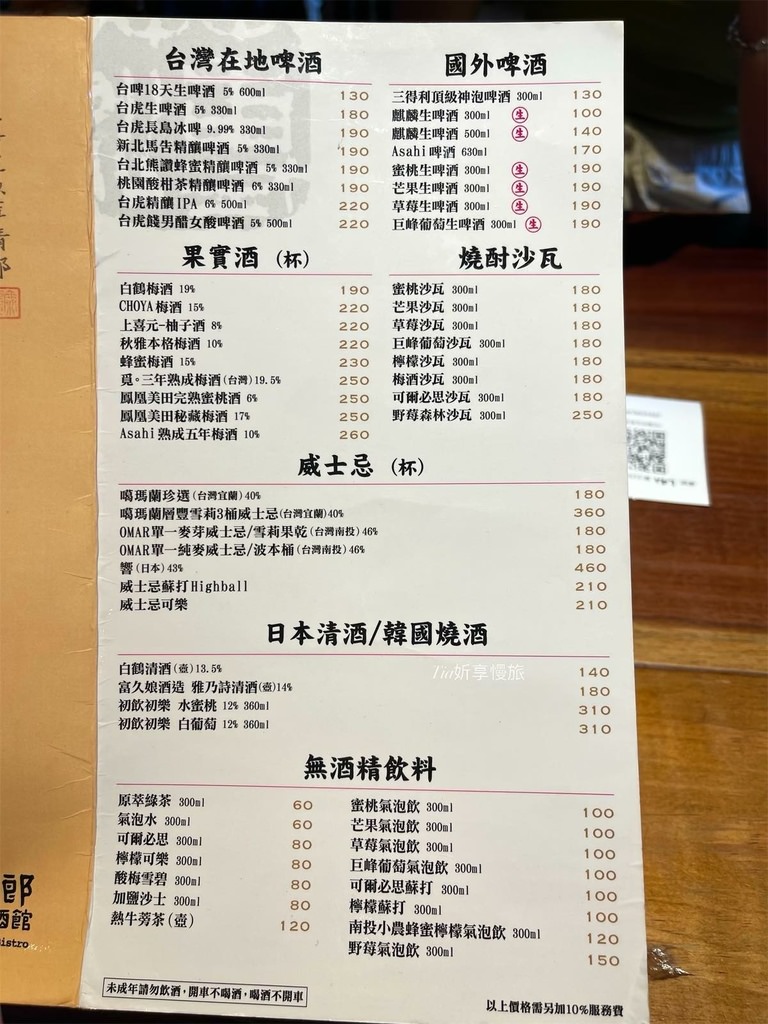 台灣在地啤酒
台啤18天生啤酒 5% 600ml 130
台虎生啤酒 5% 330ml 180
台虎長島冰啤 9.99% 330ml 190
新北馬告精釀啤酒 5% 330ml 190
台北熊讚蜂蜜精釀啤酒 5% 330ml 190
桃園酸柑茶精釀啤酒 6% 330ml 190
台虎精釀IPA 6% 500ml 220
台虎餞男醋女酸啤酒 5% 500ml 220
國外啤酒
三得利頂級神泡啤酒 300ml 130
麒麟生啤酒 300ml 生 100
麒麟生啤酒 500ml 生 140
Asahi啤酒 630ml 170
蜜桃生啤酒 300ml 生 190
芒果生啤酒 300ml 生 190
草莓生啤酒 300ml 生 190
巨峰葡萄生啤酒 300ml 生 190
果實酒 (杯)
白鶴梅酒 19% 190
CHOYA梅酒 15% 220
上喜元-柚子酒 8% 220
秋雅本格梅酒 10% 220
蜂蜜梅酒 15% 230
覓。三年熟成梅酒(台灣)19.5% 250
鳳凰美田完熟蜜桃酒 6% 250
鳳凰美田秘藏梅酒 17% 250
Asahi熟成五年梅酒 10% 260
燒酎沙瓦
蜜桃沙瓦 300ml 180
芒果沙瓦 300ml 180
草莓沙瓦 300ml 180
巨峰葡萄沙瓦 300ml 180
檸檬沙瓦 300ml 180
梅酒沙瓦 300ml 180
可爾必思沙瓦 300ml 180
野莓森林沙瓦 300ml 250
威士忌 (杯)
噶瑪蘭珍選(台灣宜蘭)40% 180
噶瑪蘭層豐雪莉3桶威士忌(台灣宜蘭)40% 360
OMAR單一麥芽威士忌/雪莉果乾(台灣南投)46% 180
OMAR單一純麥威士忌/波本桶(台灣南投)46% 180
響(日本)43% 460
威士忌蘇打Highball 210
威士忌可樂 210
日本清酒/韓國燒酒
白鶴清酒(壺)13.5% 140
富久娘酒造 雅乃詩清酒(壺)14% 180
初飲初樂 水蜜桃 12% 360ml 310
初飲初樂 白葡萄 12% 360ml 310
Tin妡享慢旅
無酒精飲料
原萃綠茶 300ml 60
氣泡水 300ml 60
可爾必思 300ml 80
檸檬可樂 300ml 80
酸梅雪碧 300ml 80
加鹽沙士 300ml 80
熱牛蒡茶(壺) 120
蜜桃氣泡飲 300ml 100
芒果氣泡飲 300ml 100
草莓氣泡飲 300ml 100
巨峰葡萄氣泡飲 300ml 100
可爾必思蘇打 300ml 100
檸檬蘇打 300ml 100
南投小農蜂蜜檸檬氣泡飲 300ml 120
野莓氣泡飲 300ml 150
未成年請勿飲酒，開車不喝酒，喝酒不開車
以上價格需另加10%服務費
郎
酒館
Bistro